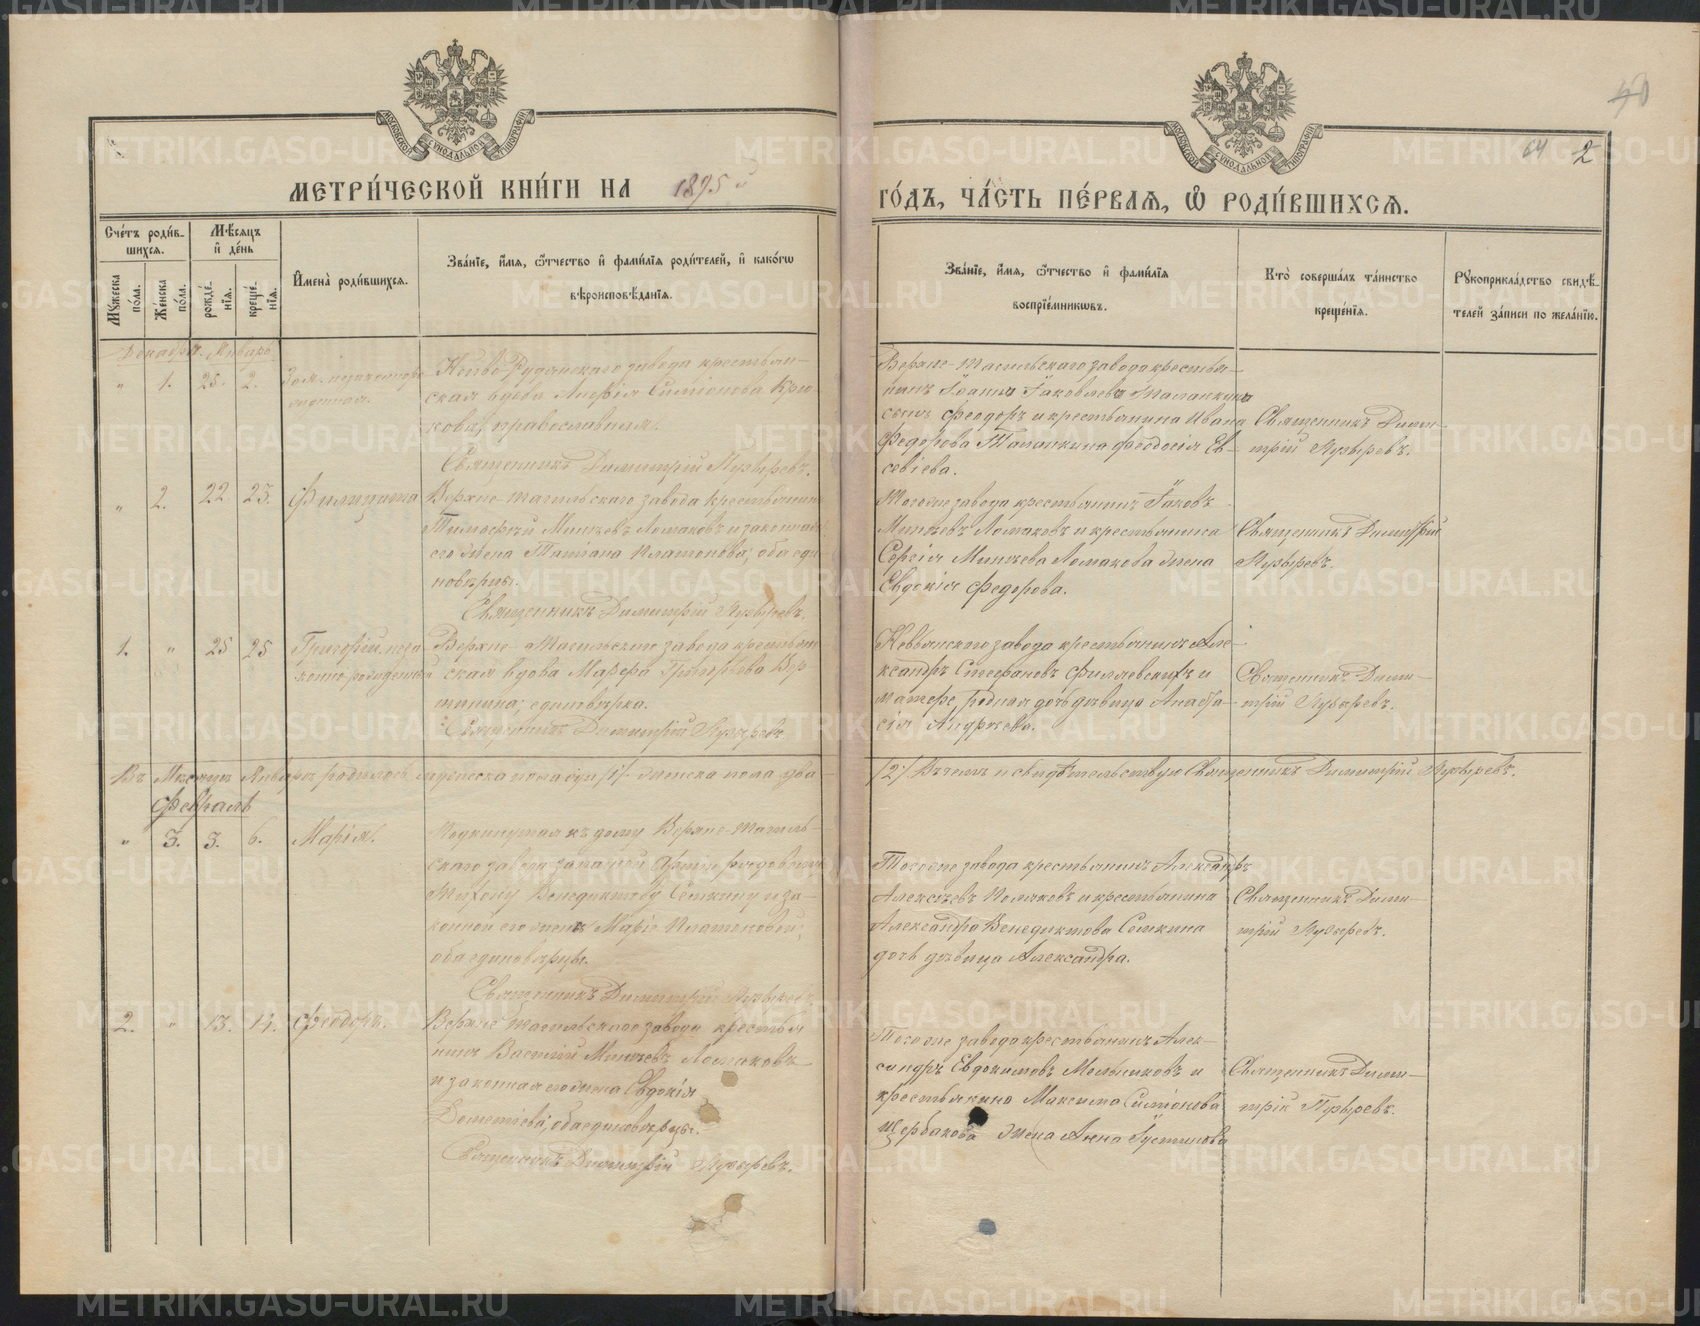 МЕТРИ́ЧЕСКОЙ КНИ́ГИ НА 1895 й
ГО́ДЪ, ЧА́СТЬ ПЕ́РВАѦ, Ѡ҆ РОДИ́ВШИХСѦ.
64 2
Сче́тъ роди́в-
шихсѧ.
Мѣ́сѧцъ
и҆ де́нь
Мꙋ́жеска
по́ла.
Же́нска
по́ла.
рожде́-
нїѧ.
креще́-
нїѧ.
И҆мена̀ роди́вшихсѧ.
Зва́нїе, и҆́мѧ, ѻ҆́тчество и҆ фами́лїѧ роди́телей, и҆ како́гѡ
вѣроисповѣ́данїѧ.
Зва́нїе, и҆́мѧ, ѻ҆́тчество и҆ фами́лїѧ
воспрїе́мникѡвъ.
Кто̀ соверша́лъ та́инство
креще́нїѧ.
Рꙋкоприкла́дство свидѣ́-
телей за́писи по жела́нїю.
Декабрь Январь
" 1. 25. 2.
Рудянскаго завода крестьян-
ская вдова Симеонова
православная.
Священникъ Димитрій Пузыревъ.
Верхне-Тагильскаго завода крестья-
нина Іоанна Іаковлева Талашкина
сынъ Феодоръ и крестьянина Ивана
Федорова Талашкина Феодосія Ев-
севіева.
Священникъ Дими-
трій Пузыревъ.
" 2. 22 23. Филицата
Верхне-Тагильскаго завода крестьянинъ
Тимофей Минѣевъ Ломаковъ и законная
его жена Татіана Платонова, оба еди
новѣрцы.
Священникъ Димитрій Пузыревъ.
Тогоже завода крестьянинъ Іаковъ
Минѣевъ Ломаковъ и крестьянина
Сергія Минѣева Ломакова жена
Евдокія Федорова.
Священникъ Димитрій
Пузыревъ.
1. " 25 25 Григорій, неза
коннорожденный
Верхне-Тагильскаго завода крестьян
ская вдова Марфа Григорьева
единовѣрка.
Священникъ Димитрій Пузыревъ
Невьянскаго завода крестьянинъ Але-
ксандръ Стефановъ и
матере, родная дочь дѣвица Анаста-
сія Андреева.
Священникъ Дими-
трій Пузыревъ.
Въ Мѣсяцѣ Январѣ родилось мужеска пола одинъ /1/. женска пола два- /2/ Въ чемъ и свидѣтельствую Священникъ Димитрій Пузыревъ.
Февраль
" 3. 3. 6. Марія.
Подкинутая къ дому Верхне-Тагиль-
скаго завода
Венедиктову Семкину и за-
конной его женѣ Маріи Платоновой,
оба единовѣрцы.
Священникъ Димитрій Пузыревъ.
Тогоже завода крестьянинъ Александръ
Алексѣевъ Поляковъ и крестьянина
Александра Венедиктова Семкина
дочь дѣвица Александра.
Священникъ Дими-
трій Пузыревъ.
2. " 13. 14. Феодоръ.
Верхне-Тагильскаго завода крестья
нинъ Василій Минѣевъ Ломаковъ
и законная его жена Евдокія
Дометіева, оба единовѣрцы.
Священникъ Димитрій Пузыревъ.
Тогоже завода крестьянинъ Алек-
сандръ Евдокимовъ Мельниковъ и
крестьянина Максима Симеонова
Щербакова жена Анна Іустинова
Священникъ Дими-
трій Пузыревъ.
METRIKI.GASO-URAL.RU